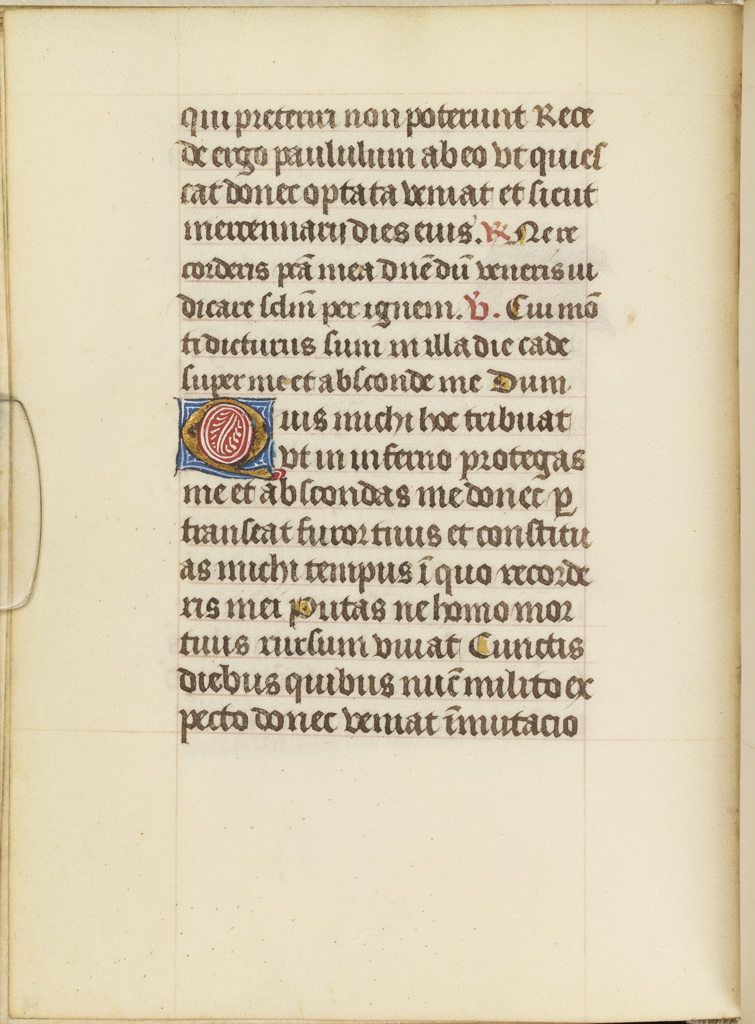 qui preteriri non poterunt Rece
de ergo paululum ab eo vt quies
cat donec optata veniat et sicut
mercennarij dies eius. R Ne re
corderis pcā mea dn̄e dū veneris iu
dicare sclm̄ per ignem. V. Cui mō
ti dicturus sum in illa die cade
super me et absconde me Dum
Quis michi hoc tribuat
vt in inferno protegas
me et abscondas me donec p̱
transeat furor tuus et constitu
as michi tempus ī quo recorde
ris mei Putas ne homo mor
tuus rursum viuat Cunctis
diebus quibus nūc milito ex
pecto donec veniat īmutacio